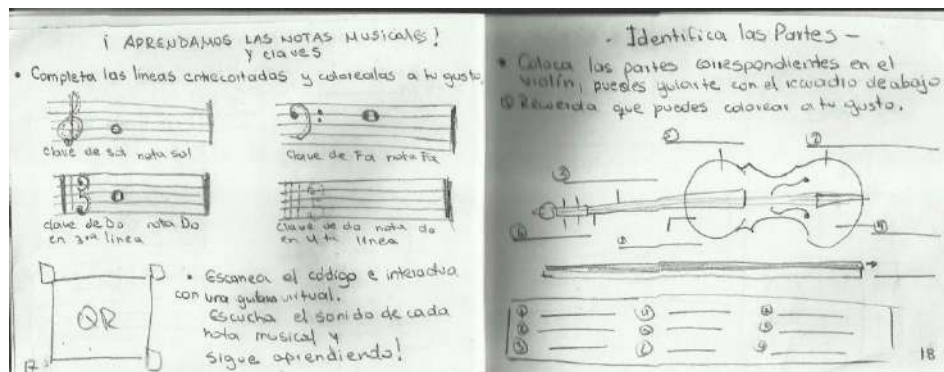 ¡ APRENDAMOS LAS NOTAS MUSICALES!
y claves
• Completa las líneas entrecortadas y colorealas a tu gusto.
clave de sol nota sol
clave de Fa nota Fa
clave de Do nota Do
en 3ra línea
clave de do nota do
en 4ta línea
QR
• Escanea el código e interactua
con una guitarra virtual.
Escucha el sonido de cada
nota musical y
sigue aprendiendo!
17
- Identifica las Partes -
• Coloca las partes correspondientes en el
violín, puedes guiarte con el recuadro de abajo
Recuerda que puedes colorear a tu gusto.
18